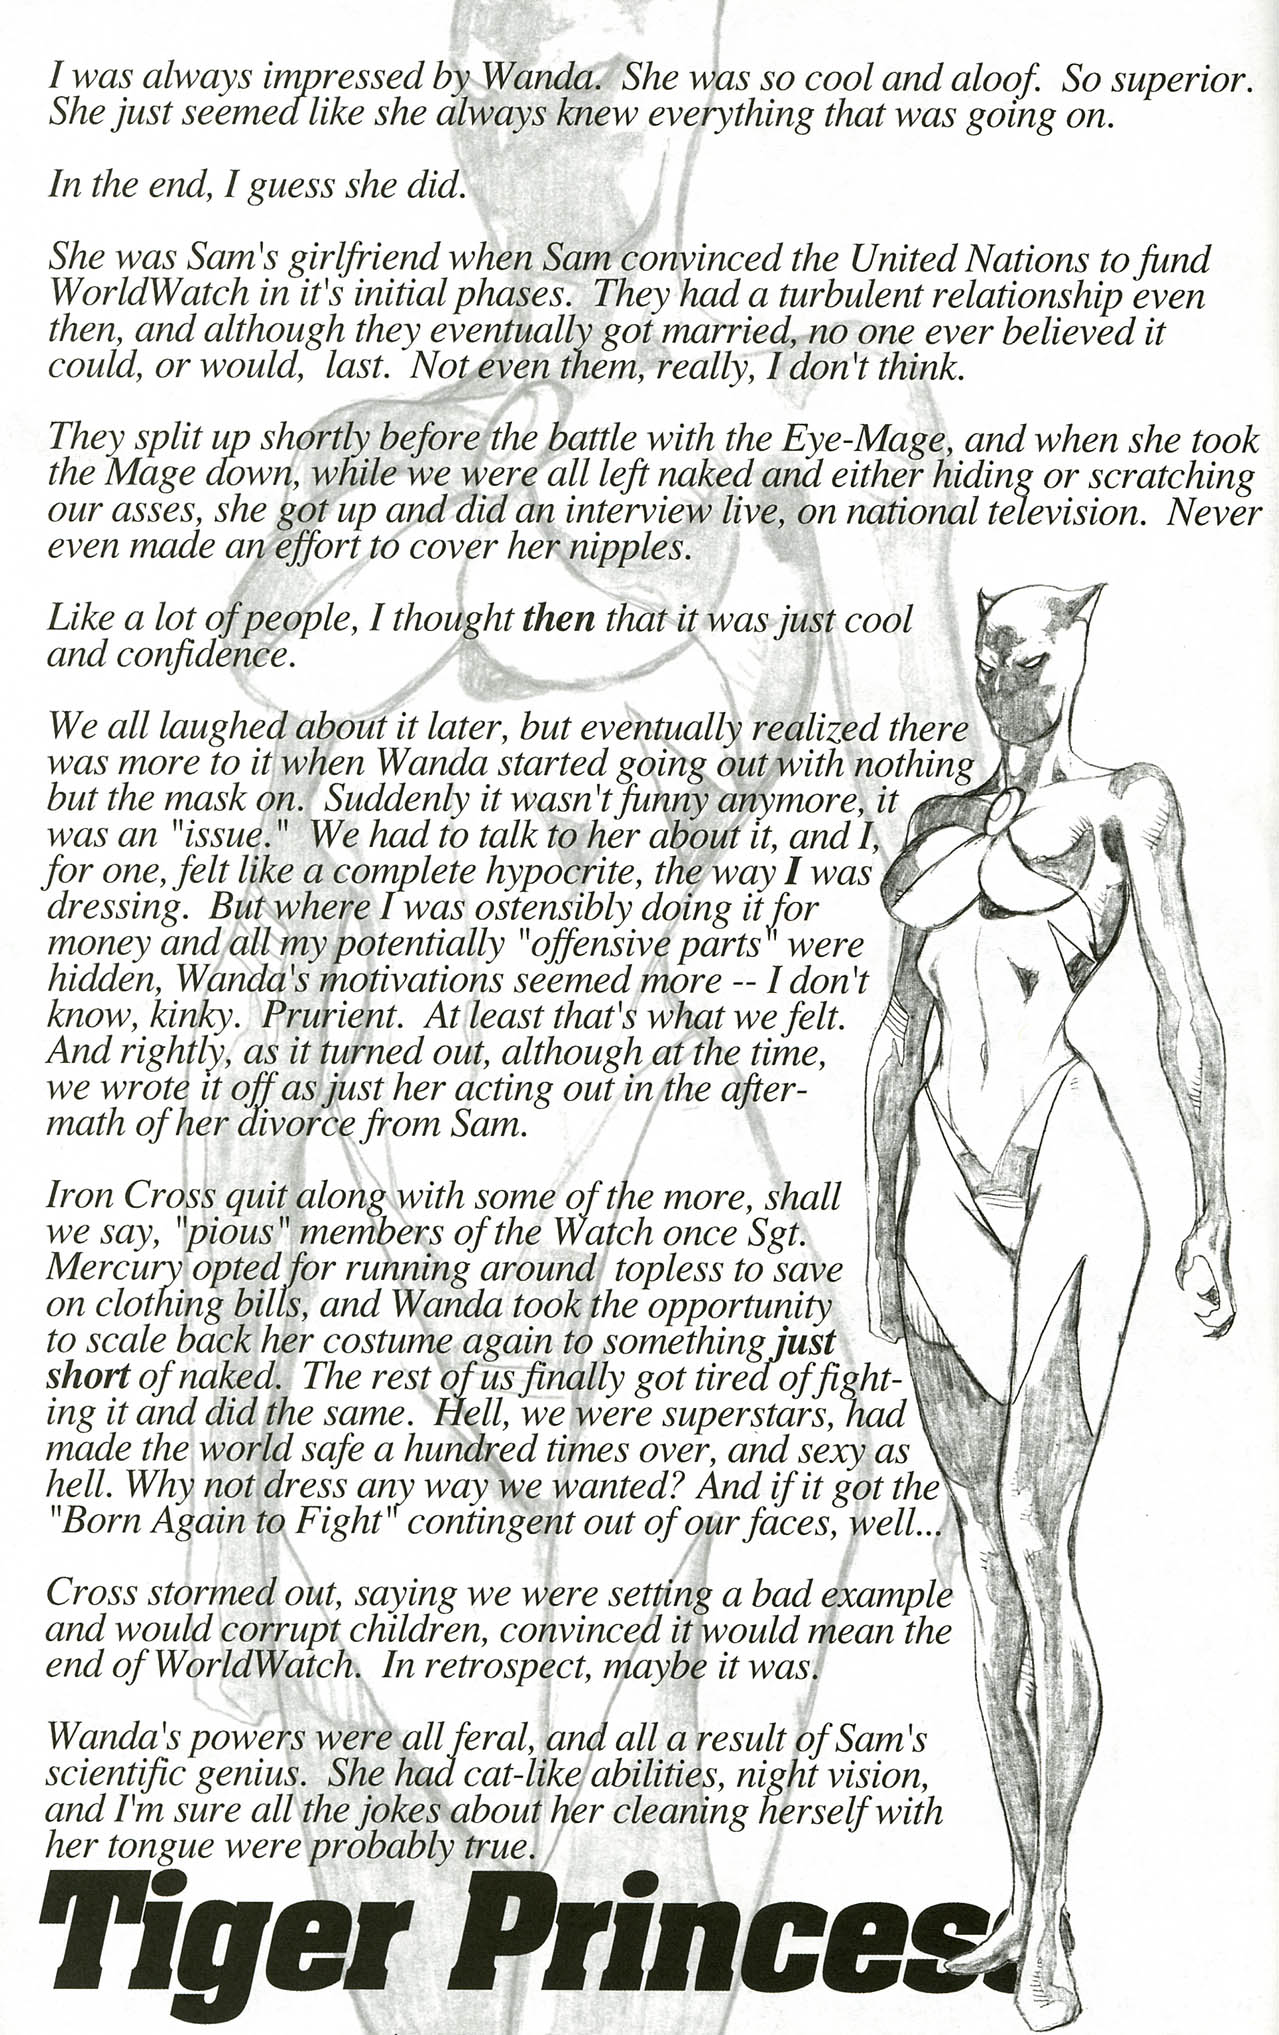 I was always impressed by Wanda.  She was so cool and aloof.  So superior.
She just seemed like she always knew everything that was going on.
In the end, I guess she did.
She was Sam's girlfriend when Sam convinced the United Nations to fund
WorldWatch in it's initial phases.  They had a turbulent relationship even
then, and although they eventually got married, no one ever believed it
could, or would,  last.  Not even them, really, I don't think.
They split up shortly before the battle with the Eye-Mage, and when she took
the Mage down, while we were all left naked and either hiding or scratching
our asses, she got up and did an interview live, on national television.  Never
even made an effort to cover her nipples.
Like a lot of people, I thought then that it was just cool
and confidence.
We all laughed about it later, but eventually realized there
was more to it when Wanda started going out with nothing
but the mask on.  Suddenly it wasn't funny anymore, it
was an "issue."  We had to talk to her about it, and I,
for one, felt like a complete hypocrite, the way I was
dressing.  But where I was ostensibly doing it for
money and all my potentially "offensive parts" were
hidden, Wanda's motivations seemed more -- I don't
know, kinky.  Prurient.  At least that's what we felt.
And rightly, as it turned out, although at the time,
we wrote it off as just her acting out in the after-
math of her divorce from Sam.
Iron Cross quit along with some of the more, shall
we say, "pious" members of the Watch once Sgt.
Mercury opted for running around  topless to save
on clothing bills, and Wanda took the opportunity
to scale back her costume again to something just
short of naked.  The rest of us finally got tired of fight-
ing it and did the same.  Hell, we were superstars, had
made the world safe a hundred times over, and sexy as
hell. Why not dress any way we wanted? And if it got the
"Born Again to Fight" contingent out of our faces, well...
Cross stormed out, saying we were setting a bad example
and would corrupt children, convinced it would mean the
end of WorldWatch.  In retrospect, maybe it was.
Wanda's powers were all feral, and all a result of Sam's
scientific genius.  She had cat-like abilities, night vision,
and I'm sure all the jokes about her cleaning herself with
her tongue were probably true.
Tiger Princess